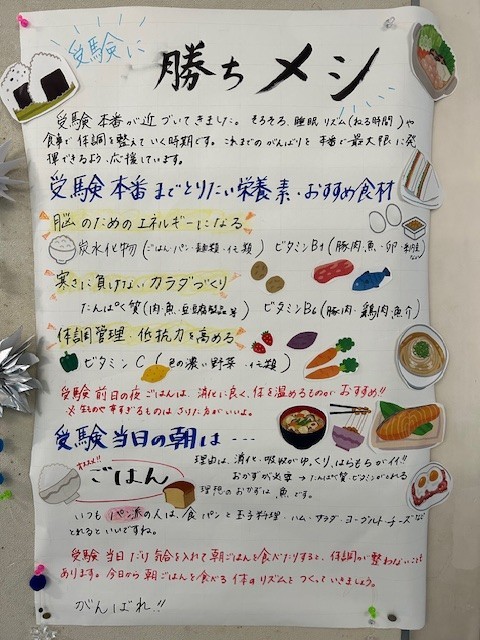 受験に
勝ちメシ
受験本番が近づいてきました。そろそろ、睡眠リズム(ねる時間)や
食事で体調を整えていく時期です。これまでのがんばりを本番で最大限に発
揮できるよう、応援しています。
受験本番までとりたい栄養素・おすすめ食材
脳のためのエネルギーになる
炭水化物(ごはん・パン・麺類・イモ類) ビタミンB1(豚肉・魚・卵・納豆など)
寒さに負けないカラダづくり
たんぱく質(肉・魚・豆腐製品等) ビタミンB6(豚肉・鶏肉・魚介)
体調管理・抵抗力を高める
ビタミンC(色の濃い野菜・イモ類)
受験前日の夜ごはんは、消化に良く、体を温めるものがおすすめ!!
※生ものや辛すぎるものはさけた方がいいよ。
受験当日の朝は---
オススメ!!
ごはん
理由は、消化・吸収がゆっくり、はらもちがイイ!!
おかずが必要→たんぱく質・ビタミンがとれる
理想のおかずは、魚です。
いつもパン派の人は、食パンと玉子料理・ハム・サラダ・ヨーグルト・チーズなど
とれるといいですね。
受験当日だけ気合を入れて朝ごはんを食べたりすると、体調が整わないことも
あります。今日から朝ごはんを食べる体のリズムをつくっていきましょう。
がんばれ!!